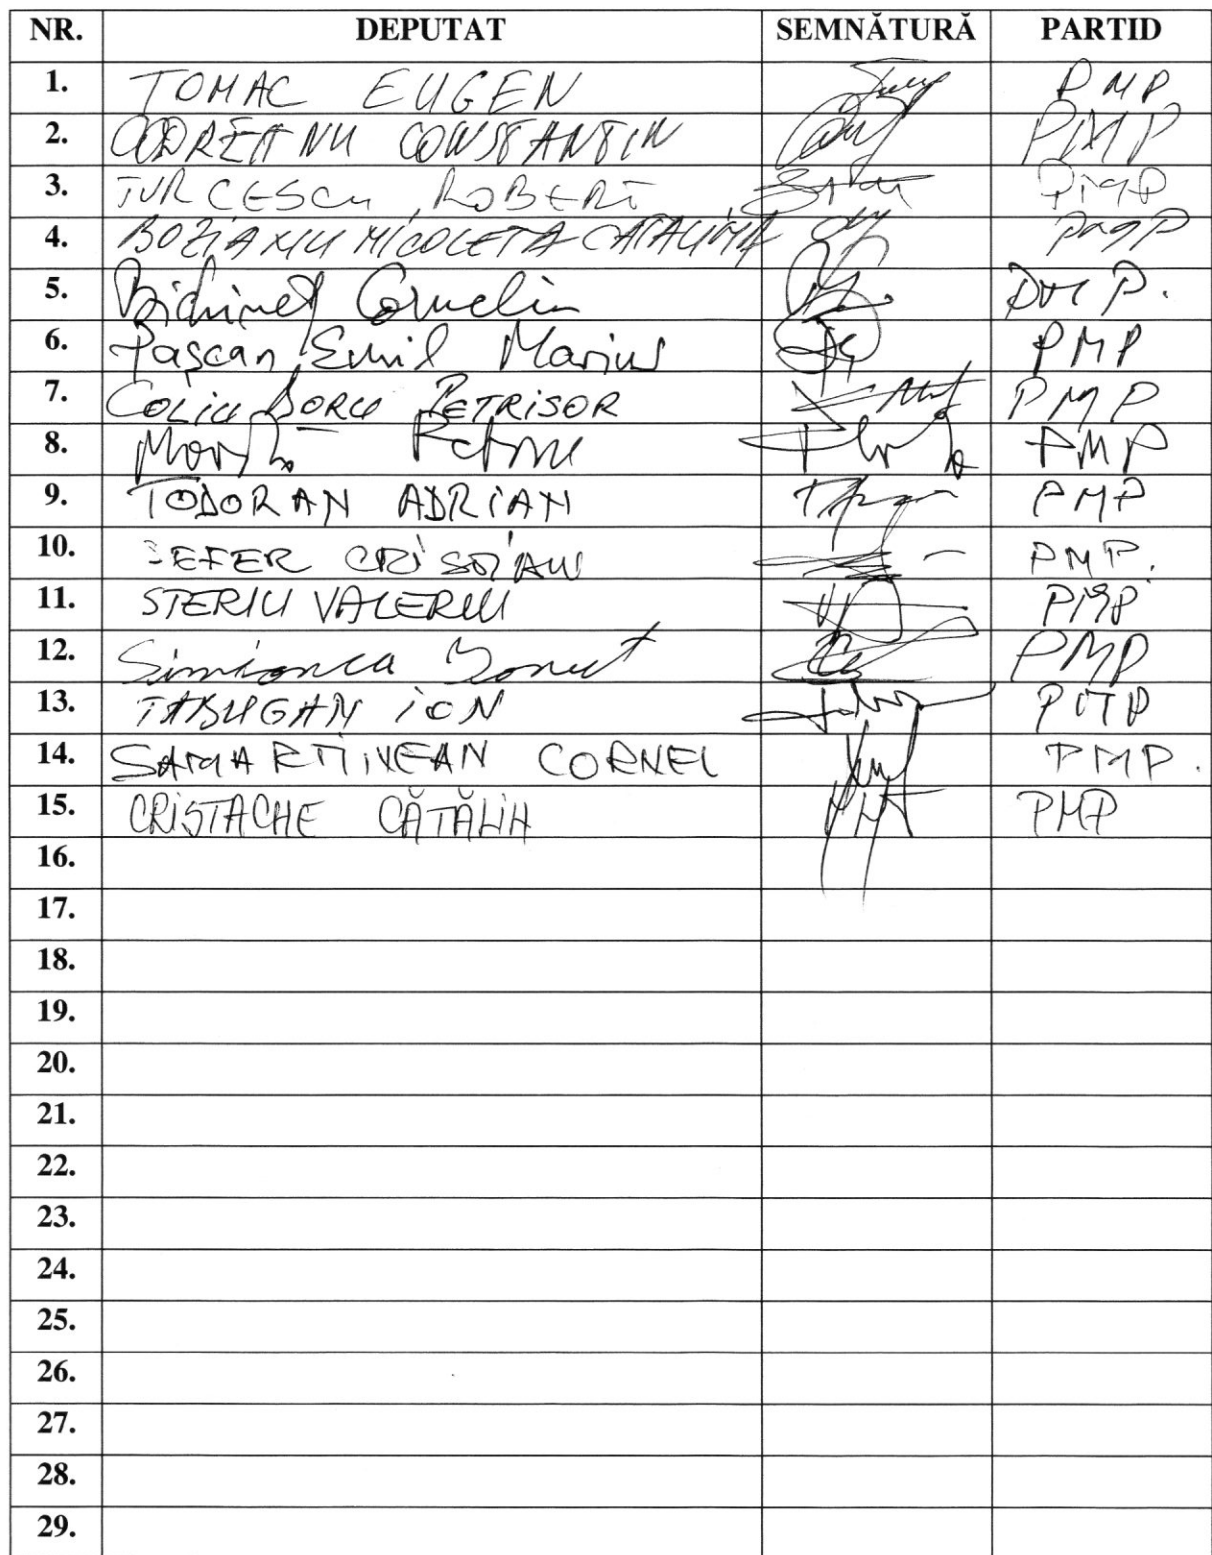 NR. DEPUTAT SEMNĂTURĂ PARTID
1. TOMAC EUGEN PMP
2. CODREANU CONSTANTIN PMP
3. TURCESCU ROBERT PMP
4. BOZIANU NICOLETA CATALINA PMP
5. Bichinet Corneliu PMP.
6. Pașcan Emil Marius PMP
7. COLIU DORU PETRISOR PMP
8. Movilă Petru PMP
9. TODORAN ADRIAN PMP
10. SEFER CRISTIAN PMP.
11. STERIU VALERIU PMP
12. Simionca Ionut PMP
13. TABUGAN ION PMP
14. SAMARTINEAN CORNEL PMP.
15. CRISTACHE CĂTĂLIN PMP
16.
17.
18.
19.
20.
21.
22.
23.
24.
25.
26.
27.
28.
29.